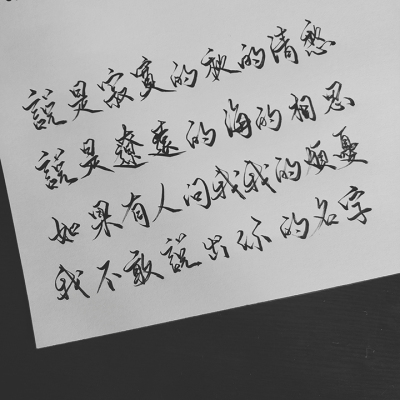 說是寂寞的秋的清愁
說是遼遠的海的相思
如果有人問我我的煩憂
我不敢說出你的名字